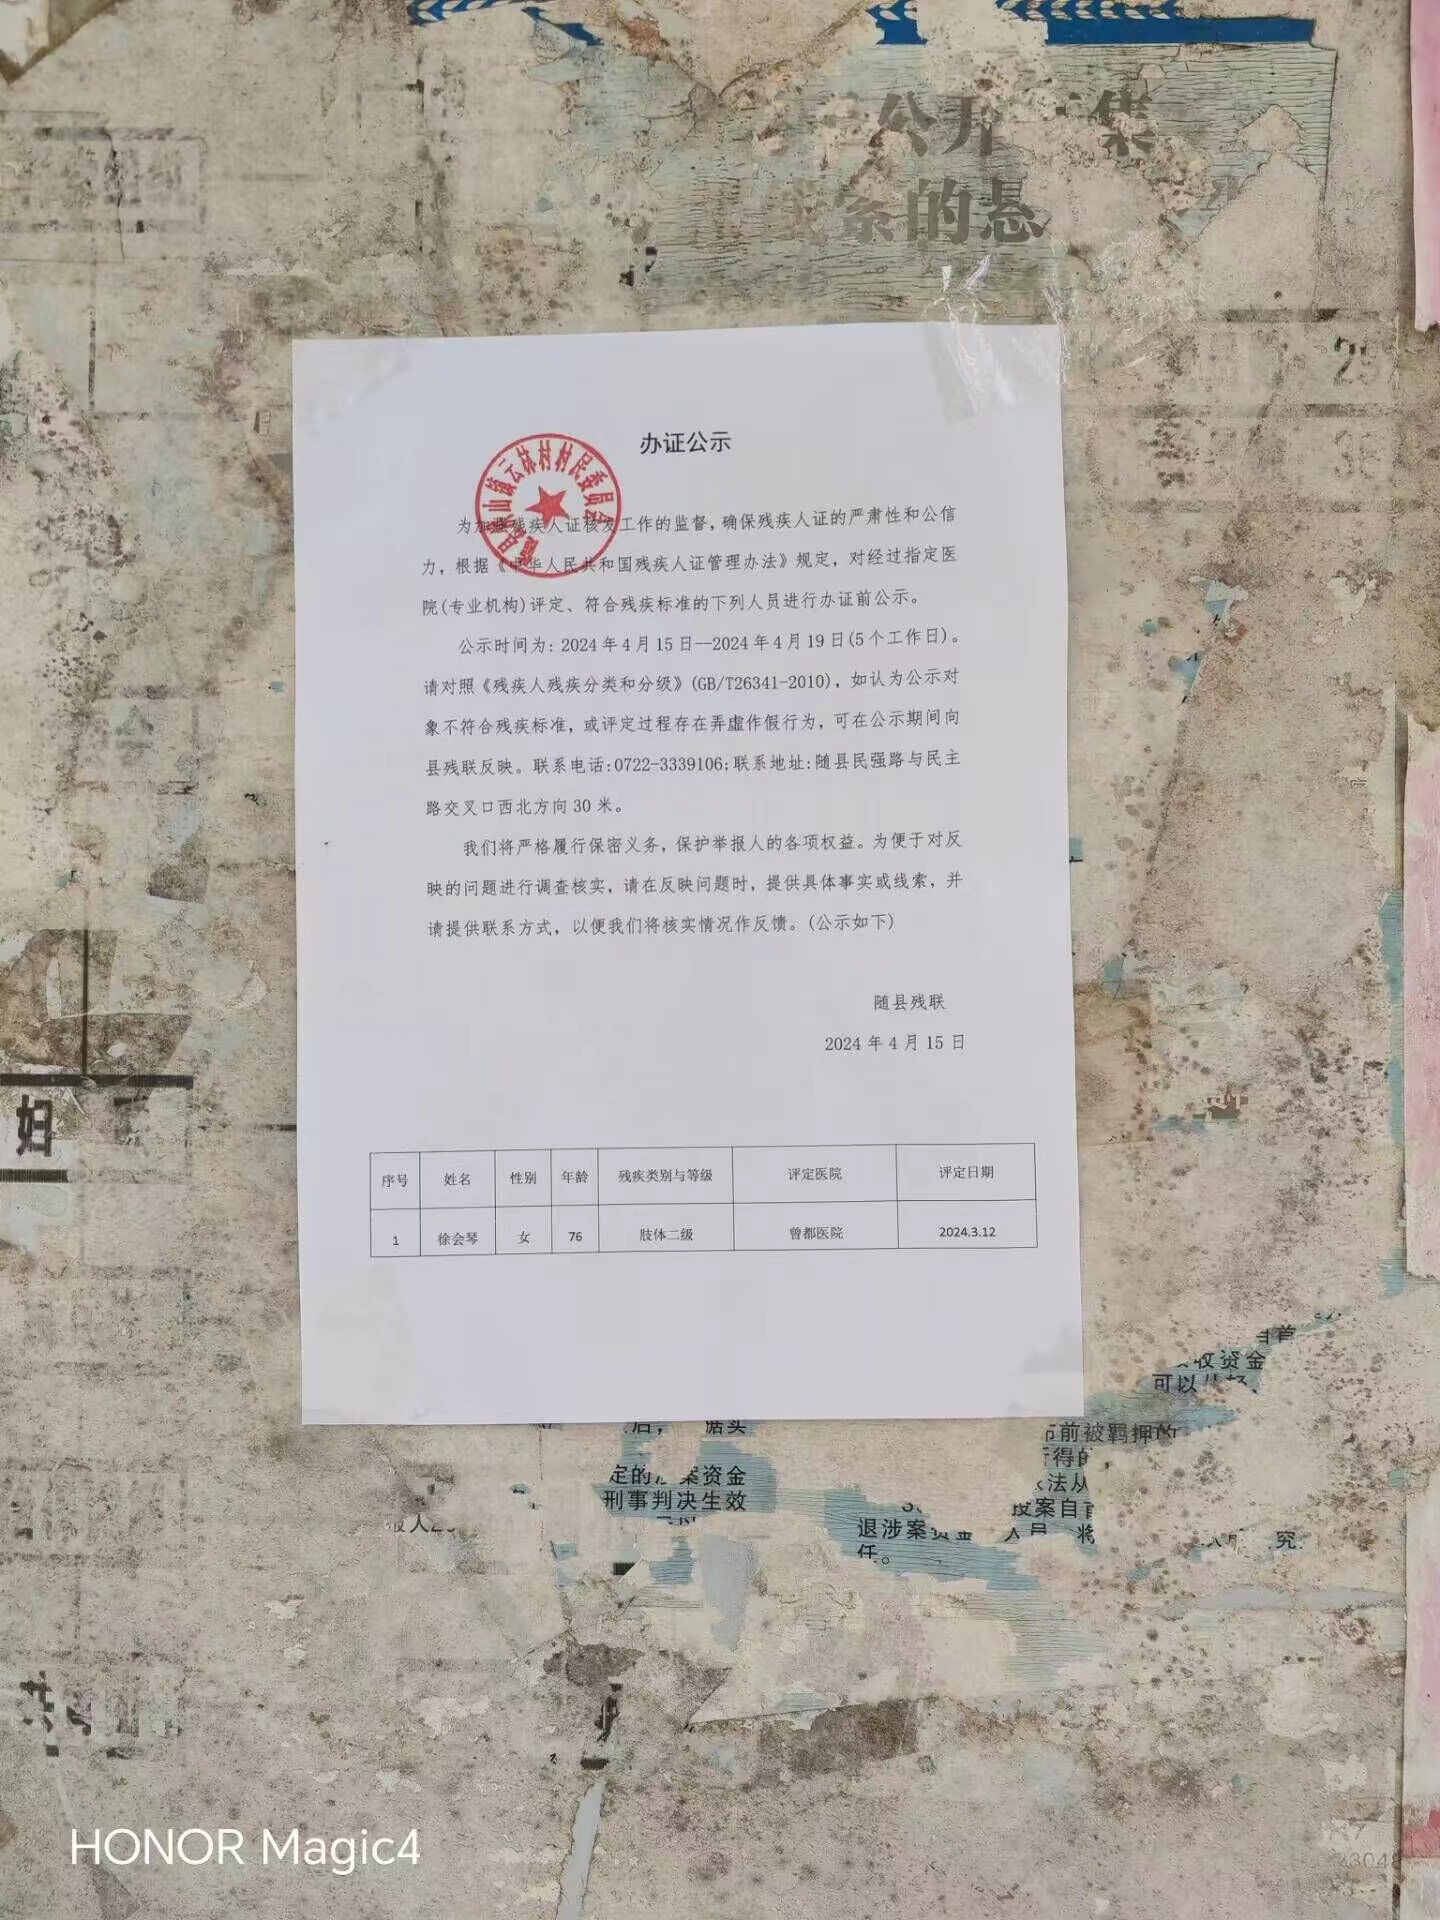 公开
集
索的
办证公示
云林村村民委员会
为加强残疾人证核发工作的监督，确保残疾人证的严肃性和公信
力，根据《中华人民共和国残疾人证管理办法》规定，对经过指定医
院(专业机构)评定、符合残疾标准的下列人员进行办证前公示。
公示时间为：2024年4月15日--2024年4月19日(5个工作日)。
请对照《残疾人残疾分类和分级》(GB/T26341-2010)，如认为公示对
象不符合残疾标准，或评定过程存在弄虚作假行为，可在公示期间向
县残联反映。联系电话:0722-3339106;联系地址:随县民强路与民主
路交叉口西北方向30米。
我们将严格履行保密义务，保护举报人的各项权益。为便于对反
映的问题进行调查核实，请在反映问题时，提供具体事实或线索，并
请提供联系方式，以便我们将核实情况作反馈。(公示如下)
随县残联
2024年4月15日
序号 姓名 性别 年龄 残疾类别与等级 评定医院 评定日期
1 徐会琴 女 76 肢体二级 曾都医院 2024.3.12
妇
收资金
可以
前被羁押的
定的 案资金
刑事判决生效
法从
投案自首
退涉案资金 人员 将
任。
究
HONOR Magic4